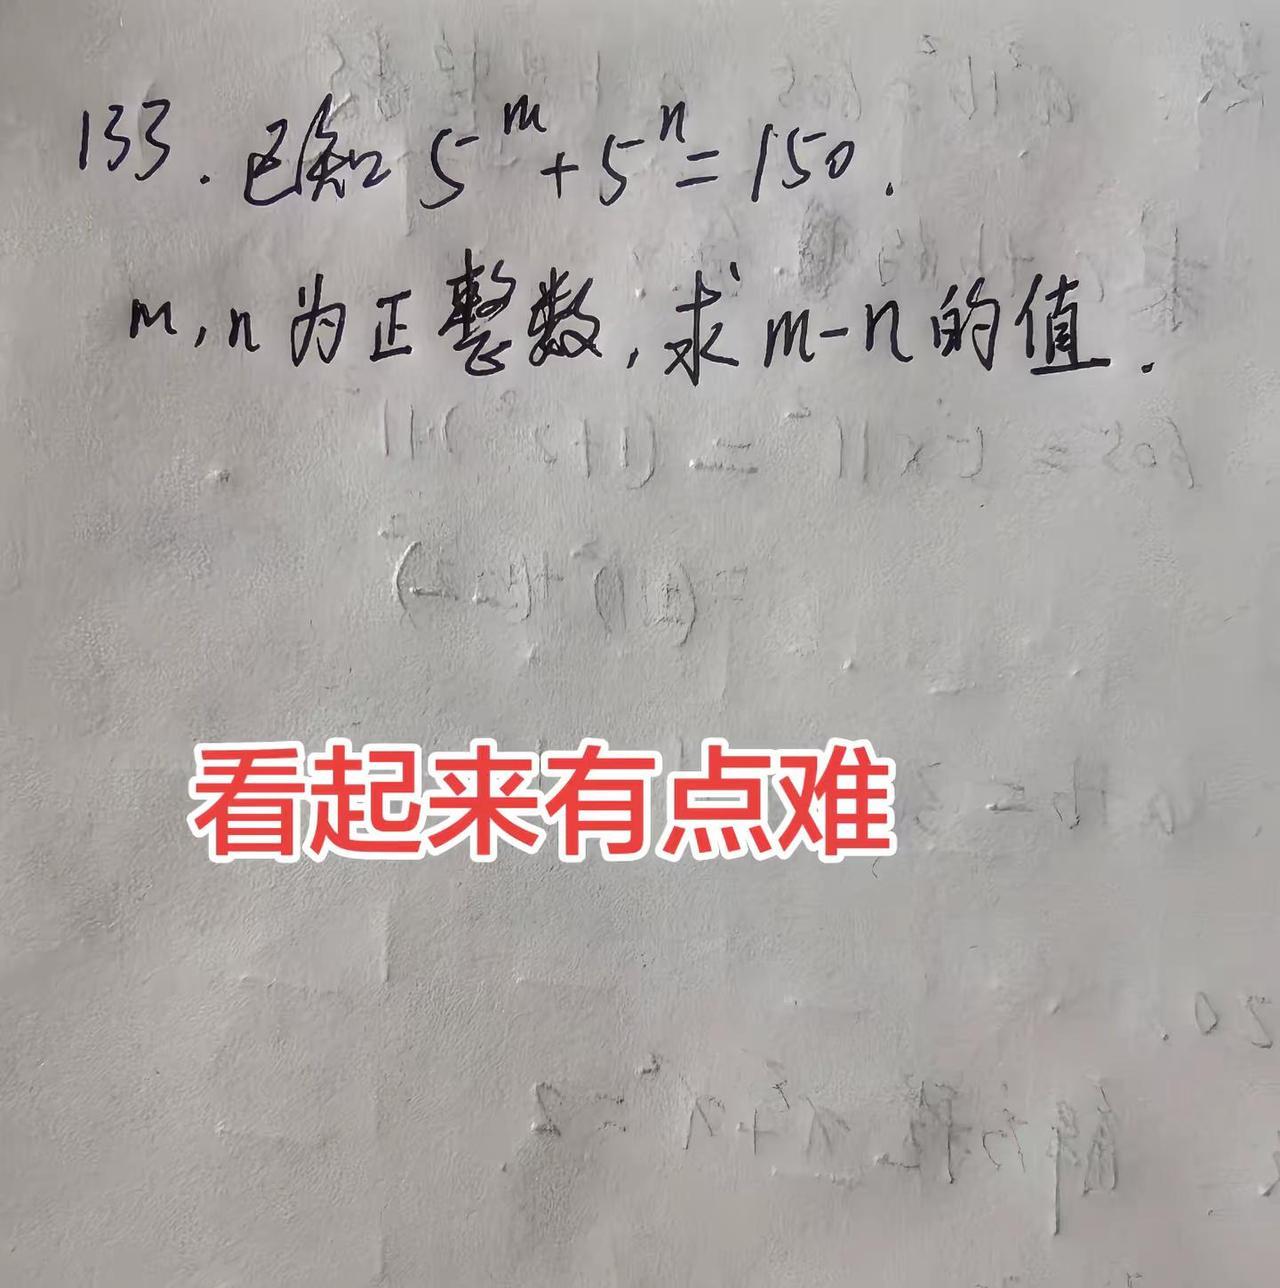 133. 已知 5^m + 5^n = 150.
m, n 为正整数, 求 m-n 的值.
看起来有点难